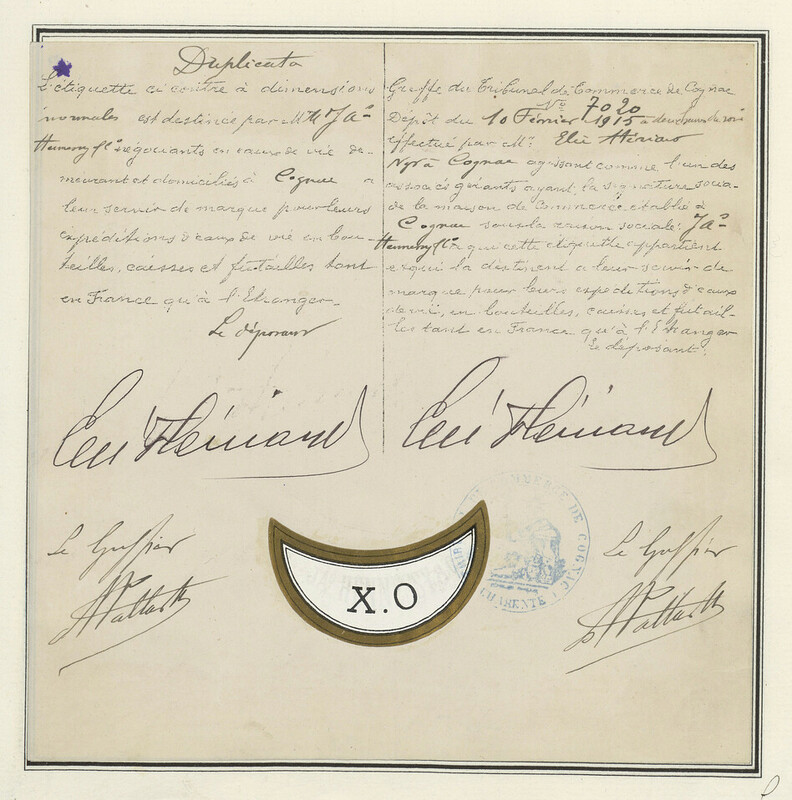 Duplicata
L'étiquette ci contre à dimensions
normales est destinée par MM Jas
Hennessy & Cº négociants en eaux de vie de-
meurant et domiciliés à Cognac a
leur servir de marque pour leurs
expéditions d'eaux de vie en bou-
teilles, caisses et futailles tant
en France qu'à l'Etranger.
Le déposant
Greffe du Tribunal de Commerce de Cognac
Nº 7020
Dépôt du 10 Février 1915 à deux heures du soir
effectué par M.
Ngt à Cognac agissant comme l'un des
associés gérants ayant la signature socia-
le de la maison de Commerce établie à
Cognac sous la raison sociale: Jas
Hennessy & Cº à qui cette étiquette appartient
et qui la destinent a leur servir de
marque pour leurs expéditions d'eaux
de vie, en bouteilles, caisses et futail-
les tant en France qu'à l'Etranger
Le déposant:
Le Greffier
Le Greffier
X.O
TRIBUNAL DE COMMERCE DE COGNAC
CHARENTE